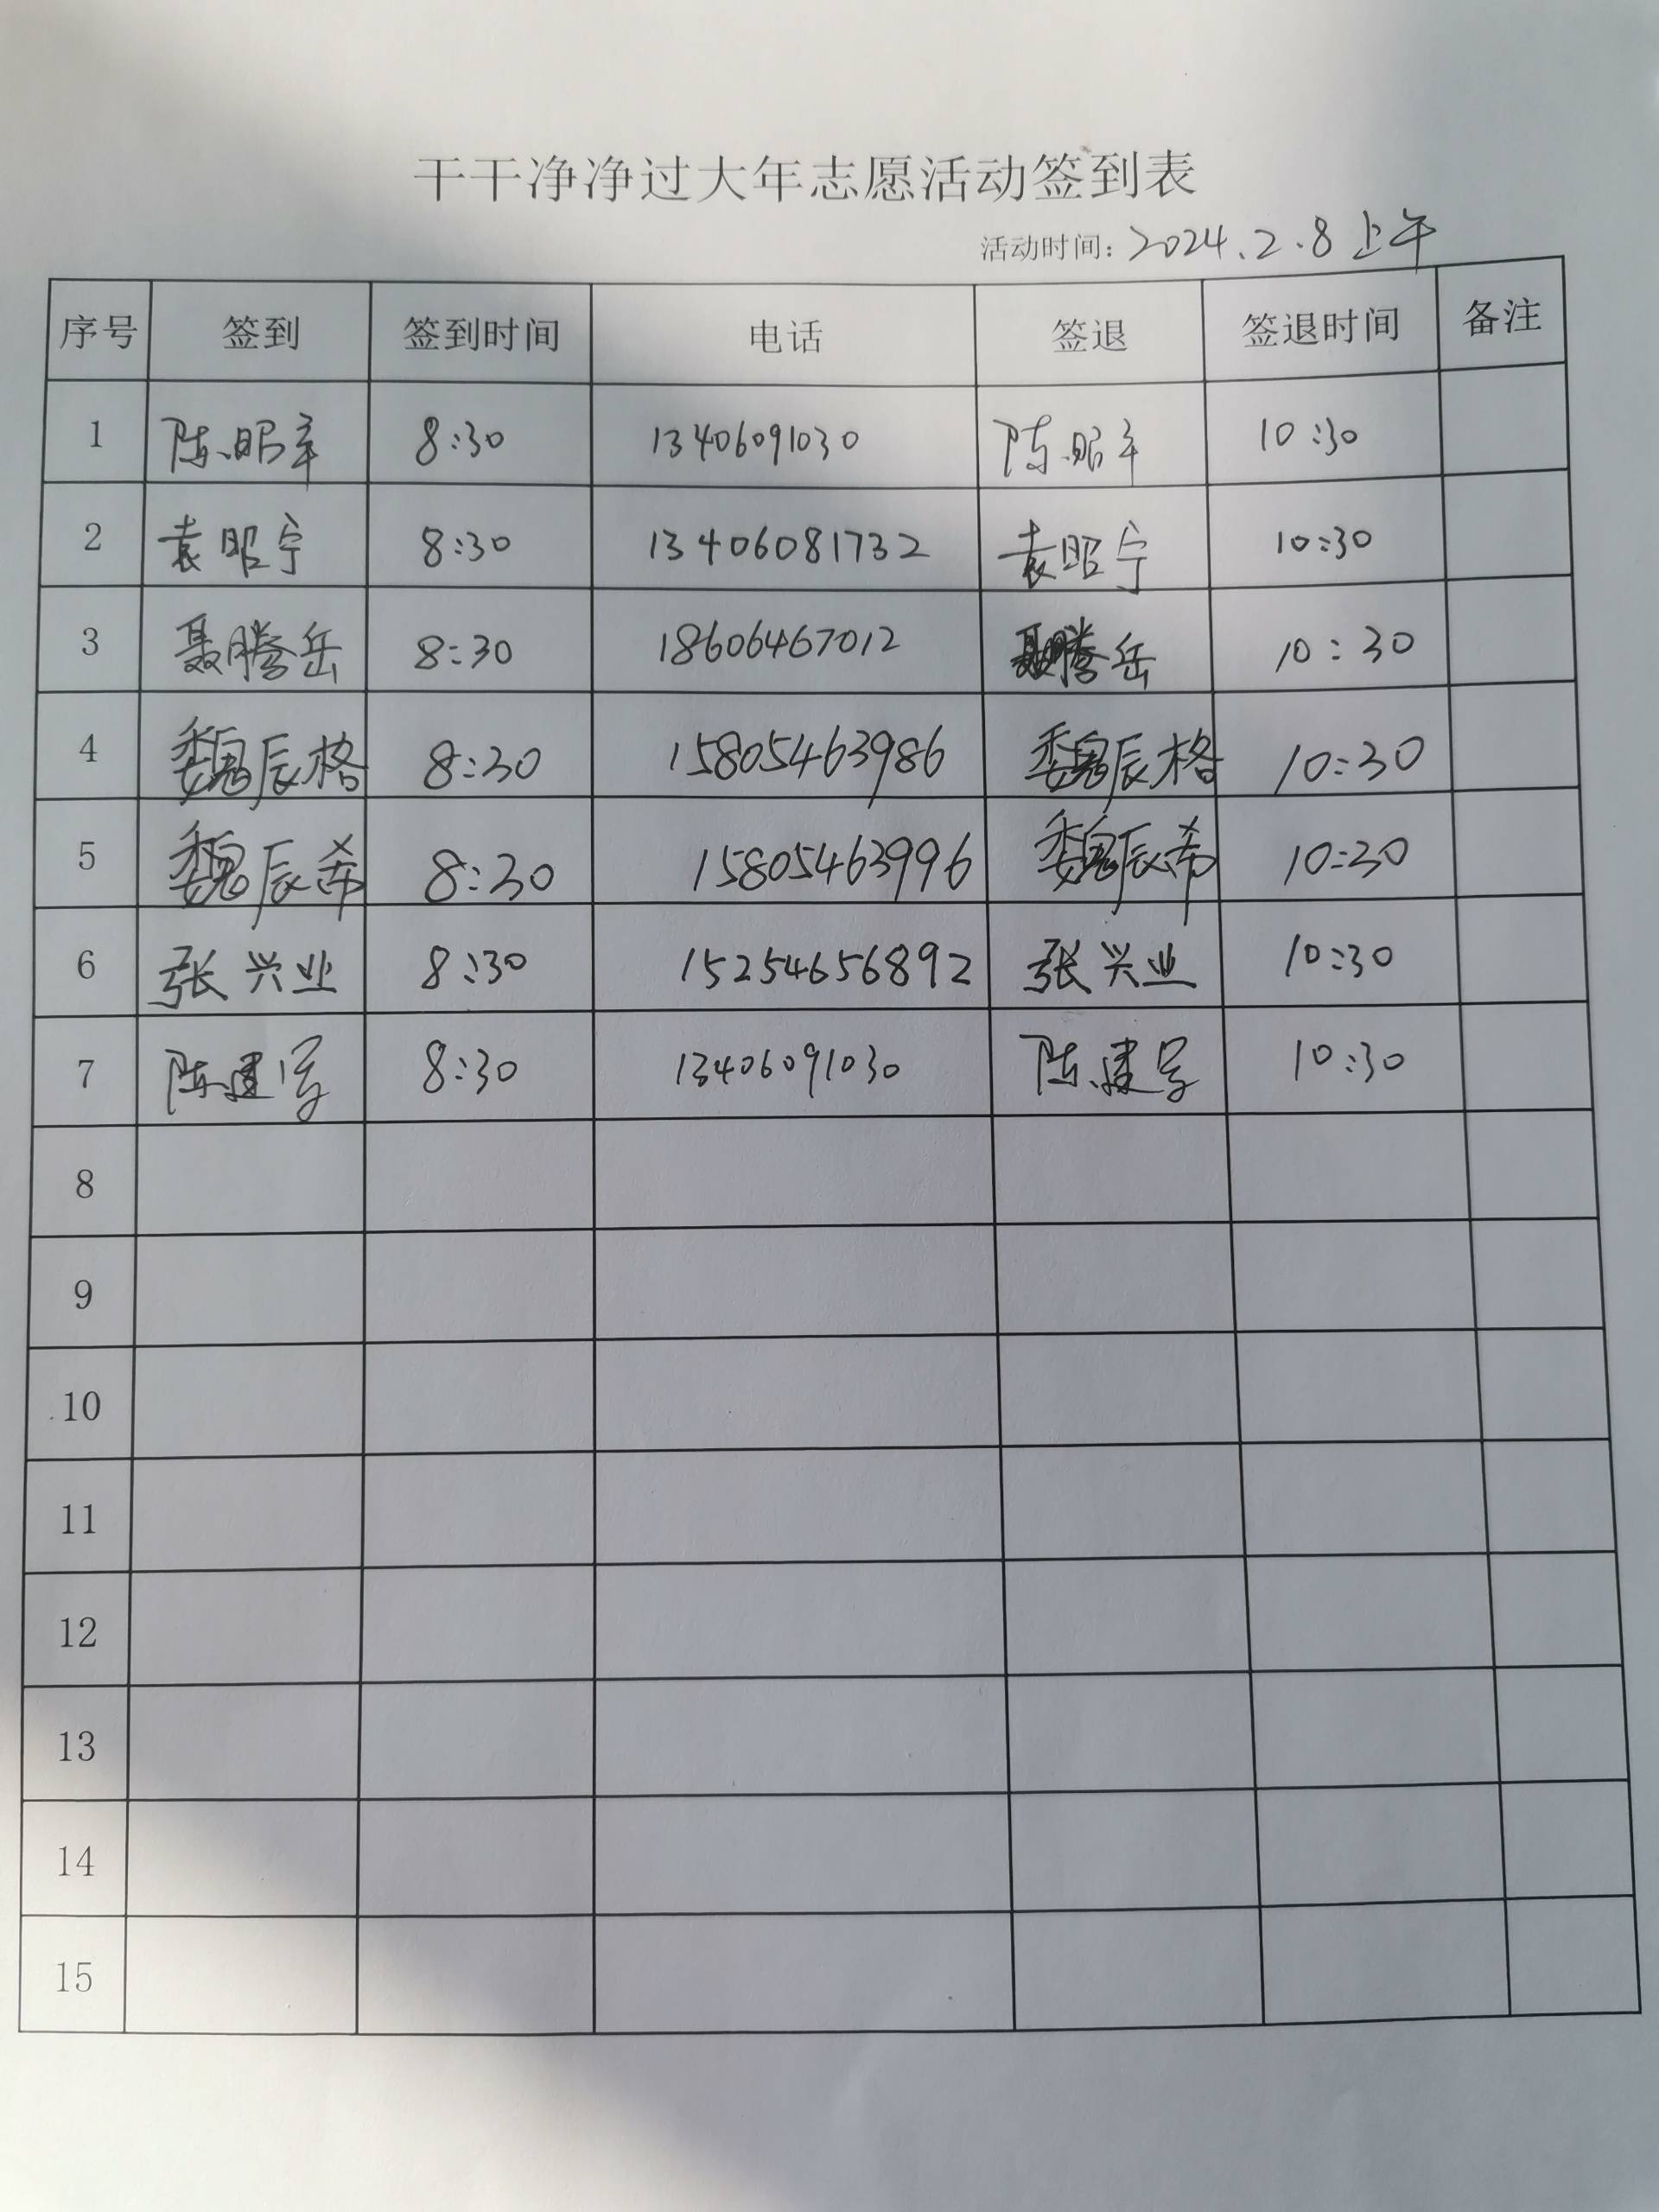 干干净净过大年志愿活动签到表
活动时间：2024.2.8 上午
序号 签到 签到时间 电话 签退 签退时间 备注
1 陈昭 8:30 13406091030 陈昭 10:30
2 袁昭宁 8:30 13406081732 袁昭宁 10:30
3 聂腾岳 8:30 18606467012 聂腾岳 10:30
4 魏辰格 8:30 15805463986 魏辰格 10:30
5 魏辰希 8:30 15805463996 魏辰希 10:30
6 张兴业 8:30 15254656892 张兴业 10:30
7 陈建 8:30 13406091030 陈建 10:30
8
9
10
11
12
13
14
15